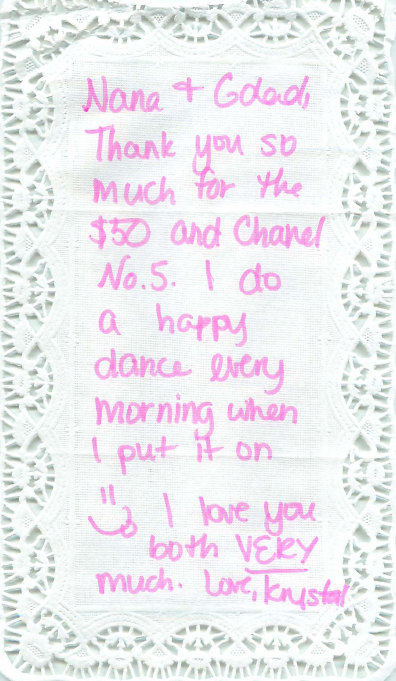 Nana + Gdad,
Thank you so
much for the
$50 and Chanel
No.5. I do
a happy
dance every
morning when
I put it on
I love you
both VERY
much. Love, Krystal